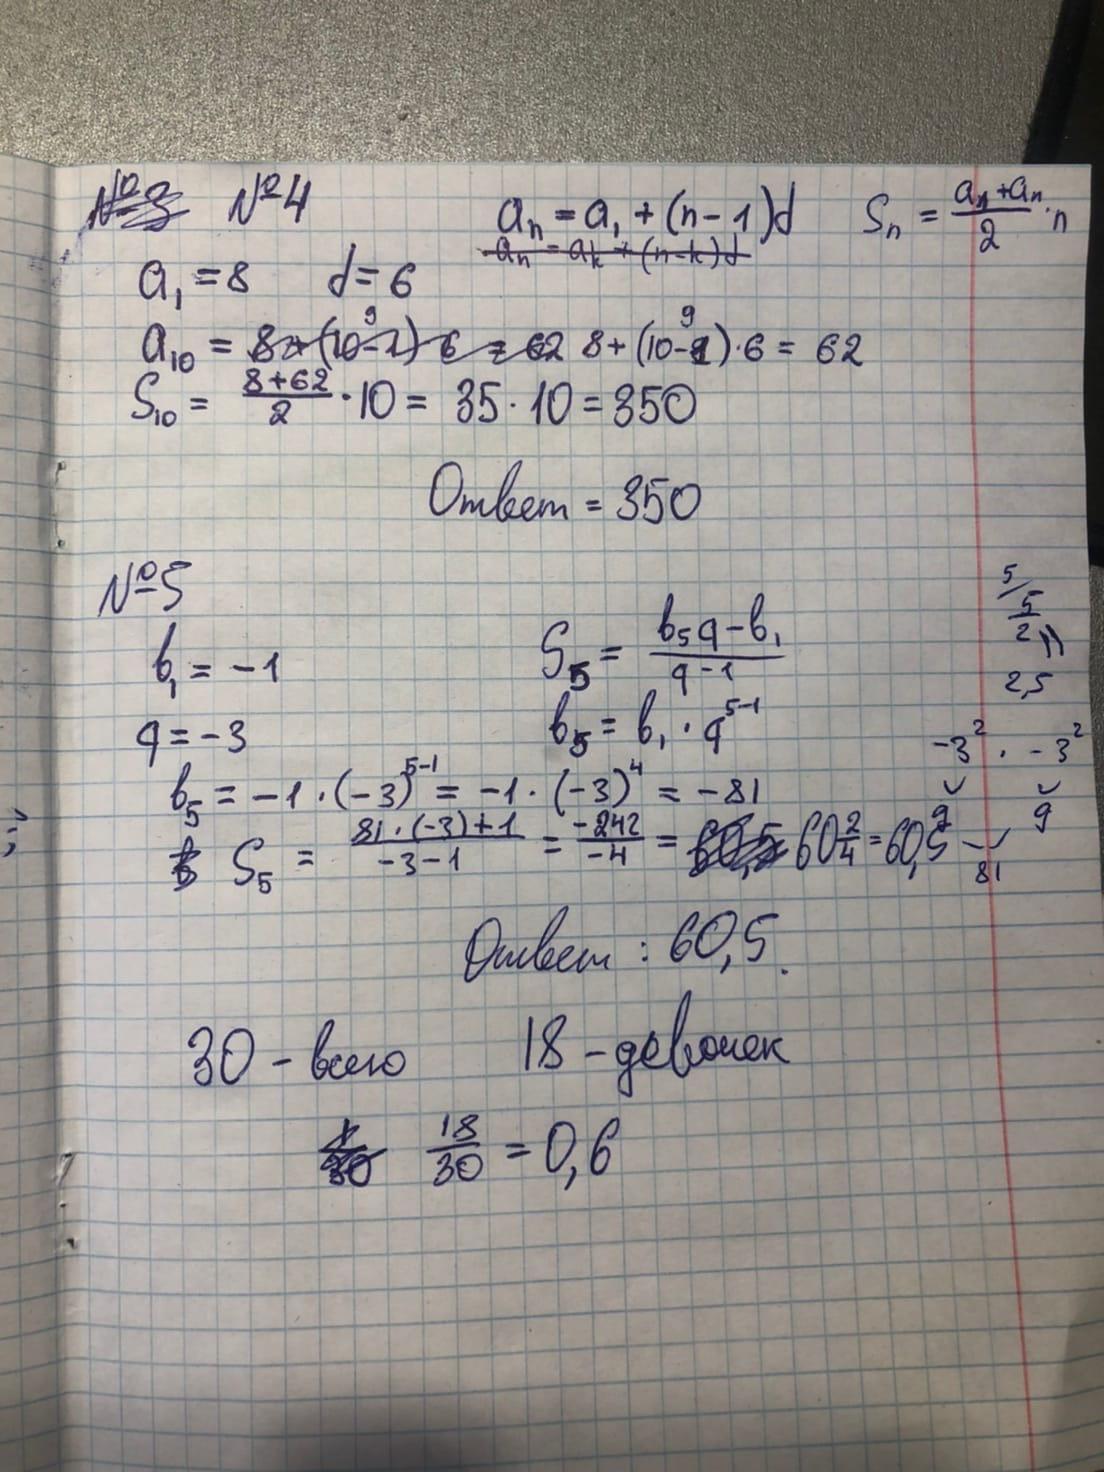 №3 №4 aₙ = a₁ + (n-1)d Sₙ = (aₙ + aₙ)/2 · n
aₙ = aₖ + (n-k)d
a₁ = 8 d = 6
9 9
a₁₀ = 8 + (10-1) · 6 = 62 8 + (10-1) · 6 = 62
S₁₀ = (8+62)/2 · 10 = 35 · 10 = 350
Ответ = 350
№5
b₁ = -1 S₅ = (b₅q - b₁)/(q - 1)
q = -3 b₅ = b₁ · q⁵⁻¹
5/
5/2
2,5
-3² · -3²
9 9
81
b₅ = -1 · (-3)⁵⁻¹ = -1 · (-3)⁴ = -81
S₅ = (81 · (-3) + 1)/(-3 - 1) = -242/-4 = 60,5 60 2/4 = 60,5
Ответ : 60,5.
30 - всего 18 - девочек
1/30 18/30 = 0,6